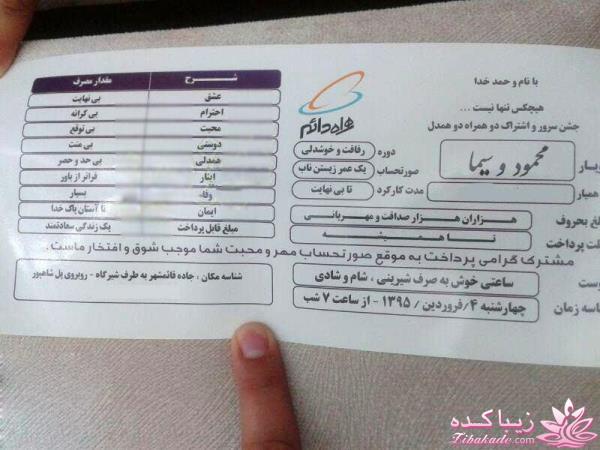 با نام و حمد خدا
هیچکس تنها نیست ...
جشن سرور و اشتراک دو همراه دو همدل
محمود و سیما
همراه دائم
دوره رفاقت و خوشدلی
صورتحساب یک عمر زیستن ناب
مدت کارکرد تا بی نهایت
بحروف هزاران هزار صداقت و مهربانی
پرداخت تا همیشه
مشترک گرامی پرداخت به موقع صورتحساب مهر و محبت شما موجب شوق و افتخار ماست.
ساعتی خوش به صرف شیرینی ، شام و شادی
زمان چهارشنبه ۴/فروردین / ۱۳۹۵ - از ساعت ۷ شب
شرح مقدار مصرف
عشق بی نهایت
احترام بی کرانه
محبت بی توقع
دوستی بی منت
همدلی بی حد و حصر
ایثار فراتر از باور
وفاء بسیار
ایمان تا آستان پاک خدا
مبلغ قابل پرداخت یک زندگی سعادتمند
شناسه مکان : جاده قائمشهر به طرف شیرگاه - روبروی پل شاهپور
زیباکده
Zibakade.com